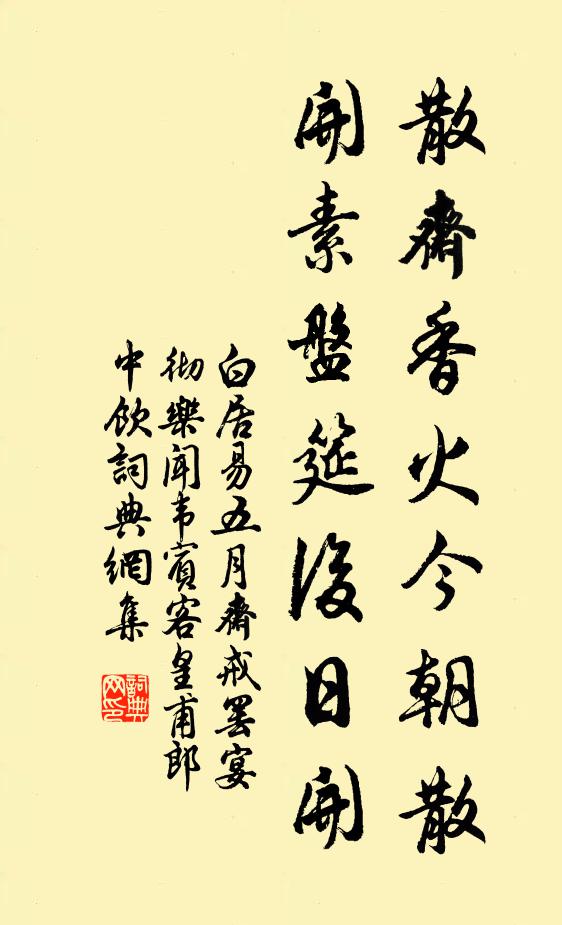 散齋香火今朝散
開素盤筵後日開
白居易五月齋戒罷宴
彻樂聞韦賓客皇甫郎
中飲詞典網集
詞典
网印